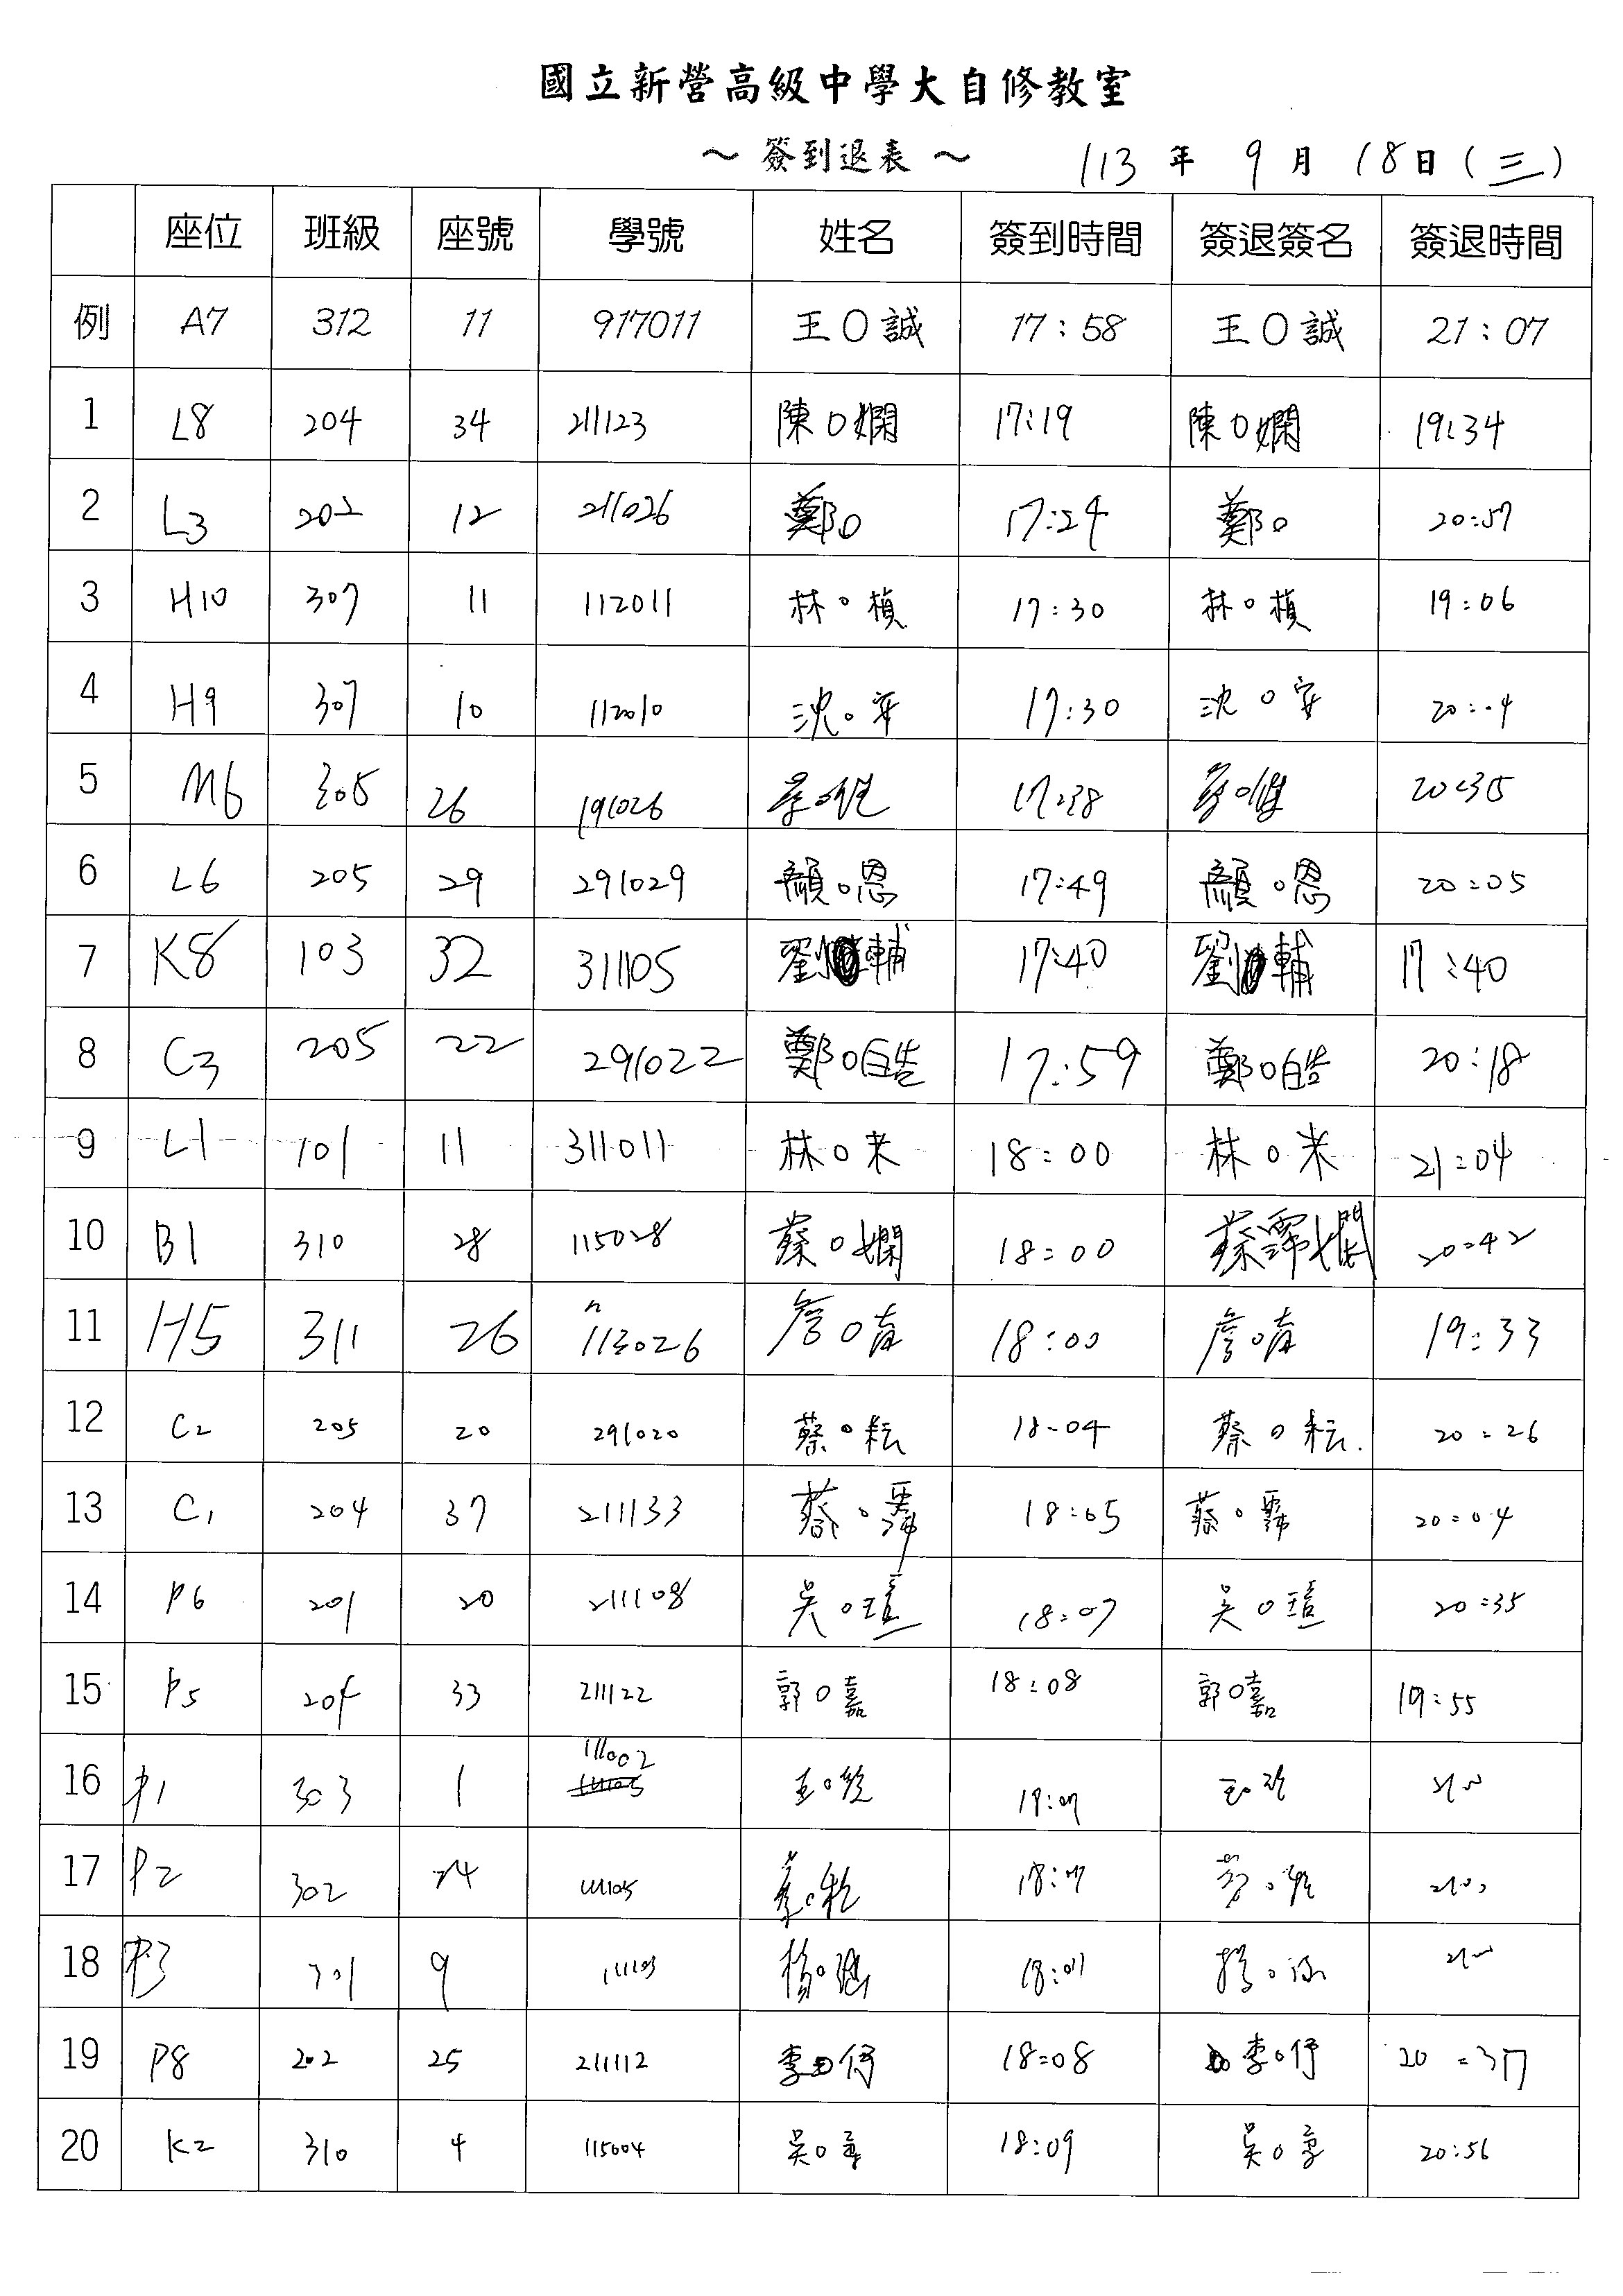 國立新營高級中學大自修教室
～ 簽到退表 ～ 113 年 9 月 18 日 (三)
座位 班級 座號 學號 姓名 簽到時間 簽退簽名 簽退時間
例 A7 312 11 917011 王O誠 17:58 王O誠 21:07
1 L8 204 34 211123 陳O嫻 17:19 陳O嫻 19:34
2 L3 202 12 211026 鄭O 17:24 鄭O 20:57
3 H10 307 11 112011 林O楨 17:30 林O楨 19:06
4 H9 307 10 112010 沈O安 17:30 沈O安 20:04
5 M6 305 26 191026 17:38 20:35
6 L6 205 29 291029 顏O恩 17:49 顏O恩 20:05
7 K8 103 32 311105 劉O輔 17:40 劉O輔 17:40
8 C3 205 22 291022 鄭O皓 17:59 鄭O皓 20:18
9 L1 101 11 311011 林O米 18:00 林O米 21:04
10 B1 310 28 115028 蔡O嫻 18:00 蔡霈嫻 20:42
11 H5 311 26 113026 詹O 18:00 詹O 19:33
12 C2 205 20 291020 蔡O耘 18:04 蔡O耘 20:26
13 C1 204 37 211133 蔡O霈 18:05 蔡O霈 20:04
14 P6 201 20 211108 吳O瑄 18:07 吳O瑄 20:35
15 P5 204 33 211122 郭O嘉 18:08 郭O嘉 19:55
16 P1 303 1 111002 王O 王O
17 P2 302 24 111105 18:07 21:00
18 P3 301 9 111103 楊O涵 18:07 楊O涵 21:00
19 P8 202 25 211112 李O伃 18:08 李O伃 20:37
20 K2 310 4 115004 吳O 18:09 吳O 20:56